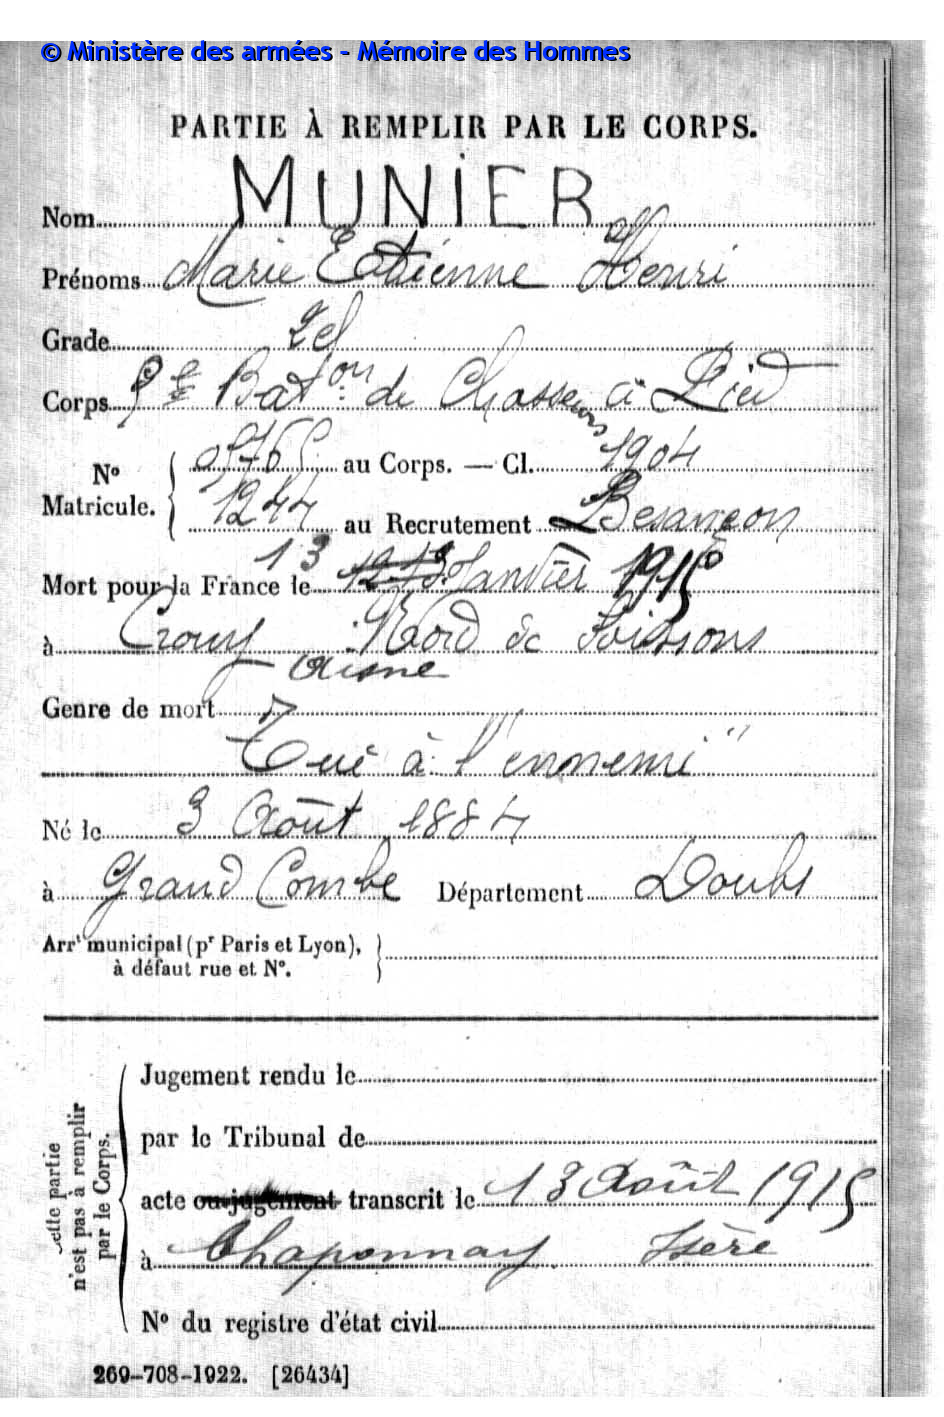 © Ministère des armées - Mémoire des Hommes
PARTIE À REMPLIR PAR LE CORPS.
Nom MUNIER
Prénoms Marie Etienne Henri
Grade 2cl
Corps Bat.on de Chasseurs à Pied
N° Matricule. au Corps. — Cl. 1904
1244 au Recrutement Besançon
13
Mort pour la France le Janvier 1915
à Crouy Nord de Soissons
Aisne
Genre de mort
Tué à l'ennemi"
Né le 3 Août 1884
à Grand Combe Département Doubs
Arrt municipal (pr Paris et Lyon),
à défaut rue et N°.
Cette partie
n'est pas à remplir
par le Corps.
Jugement rendu le
par le Tribunal de
acte ou jugement transcrit le 13 Août 1915
à Chaponnay Isère
N° du registre d'état civil
269-708-1922. [26434]